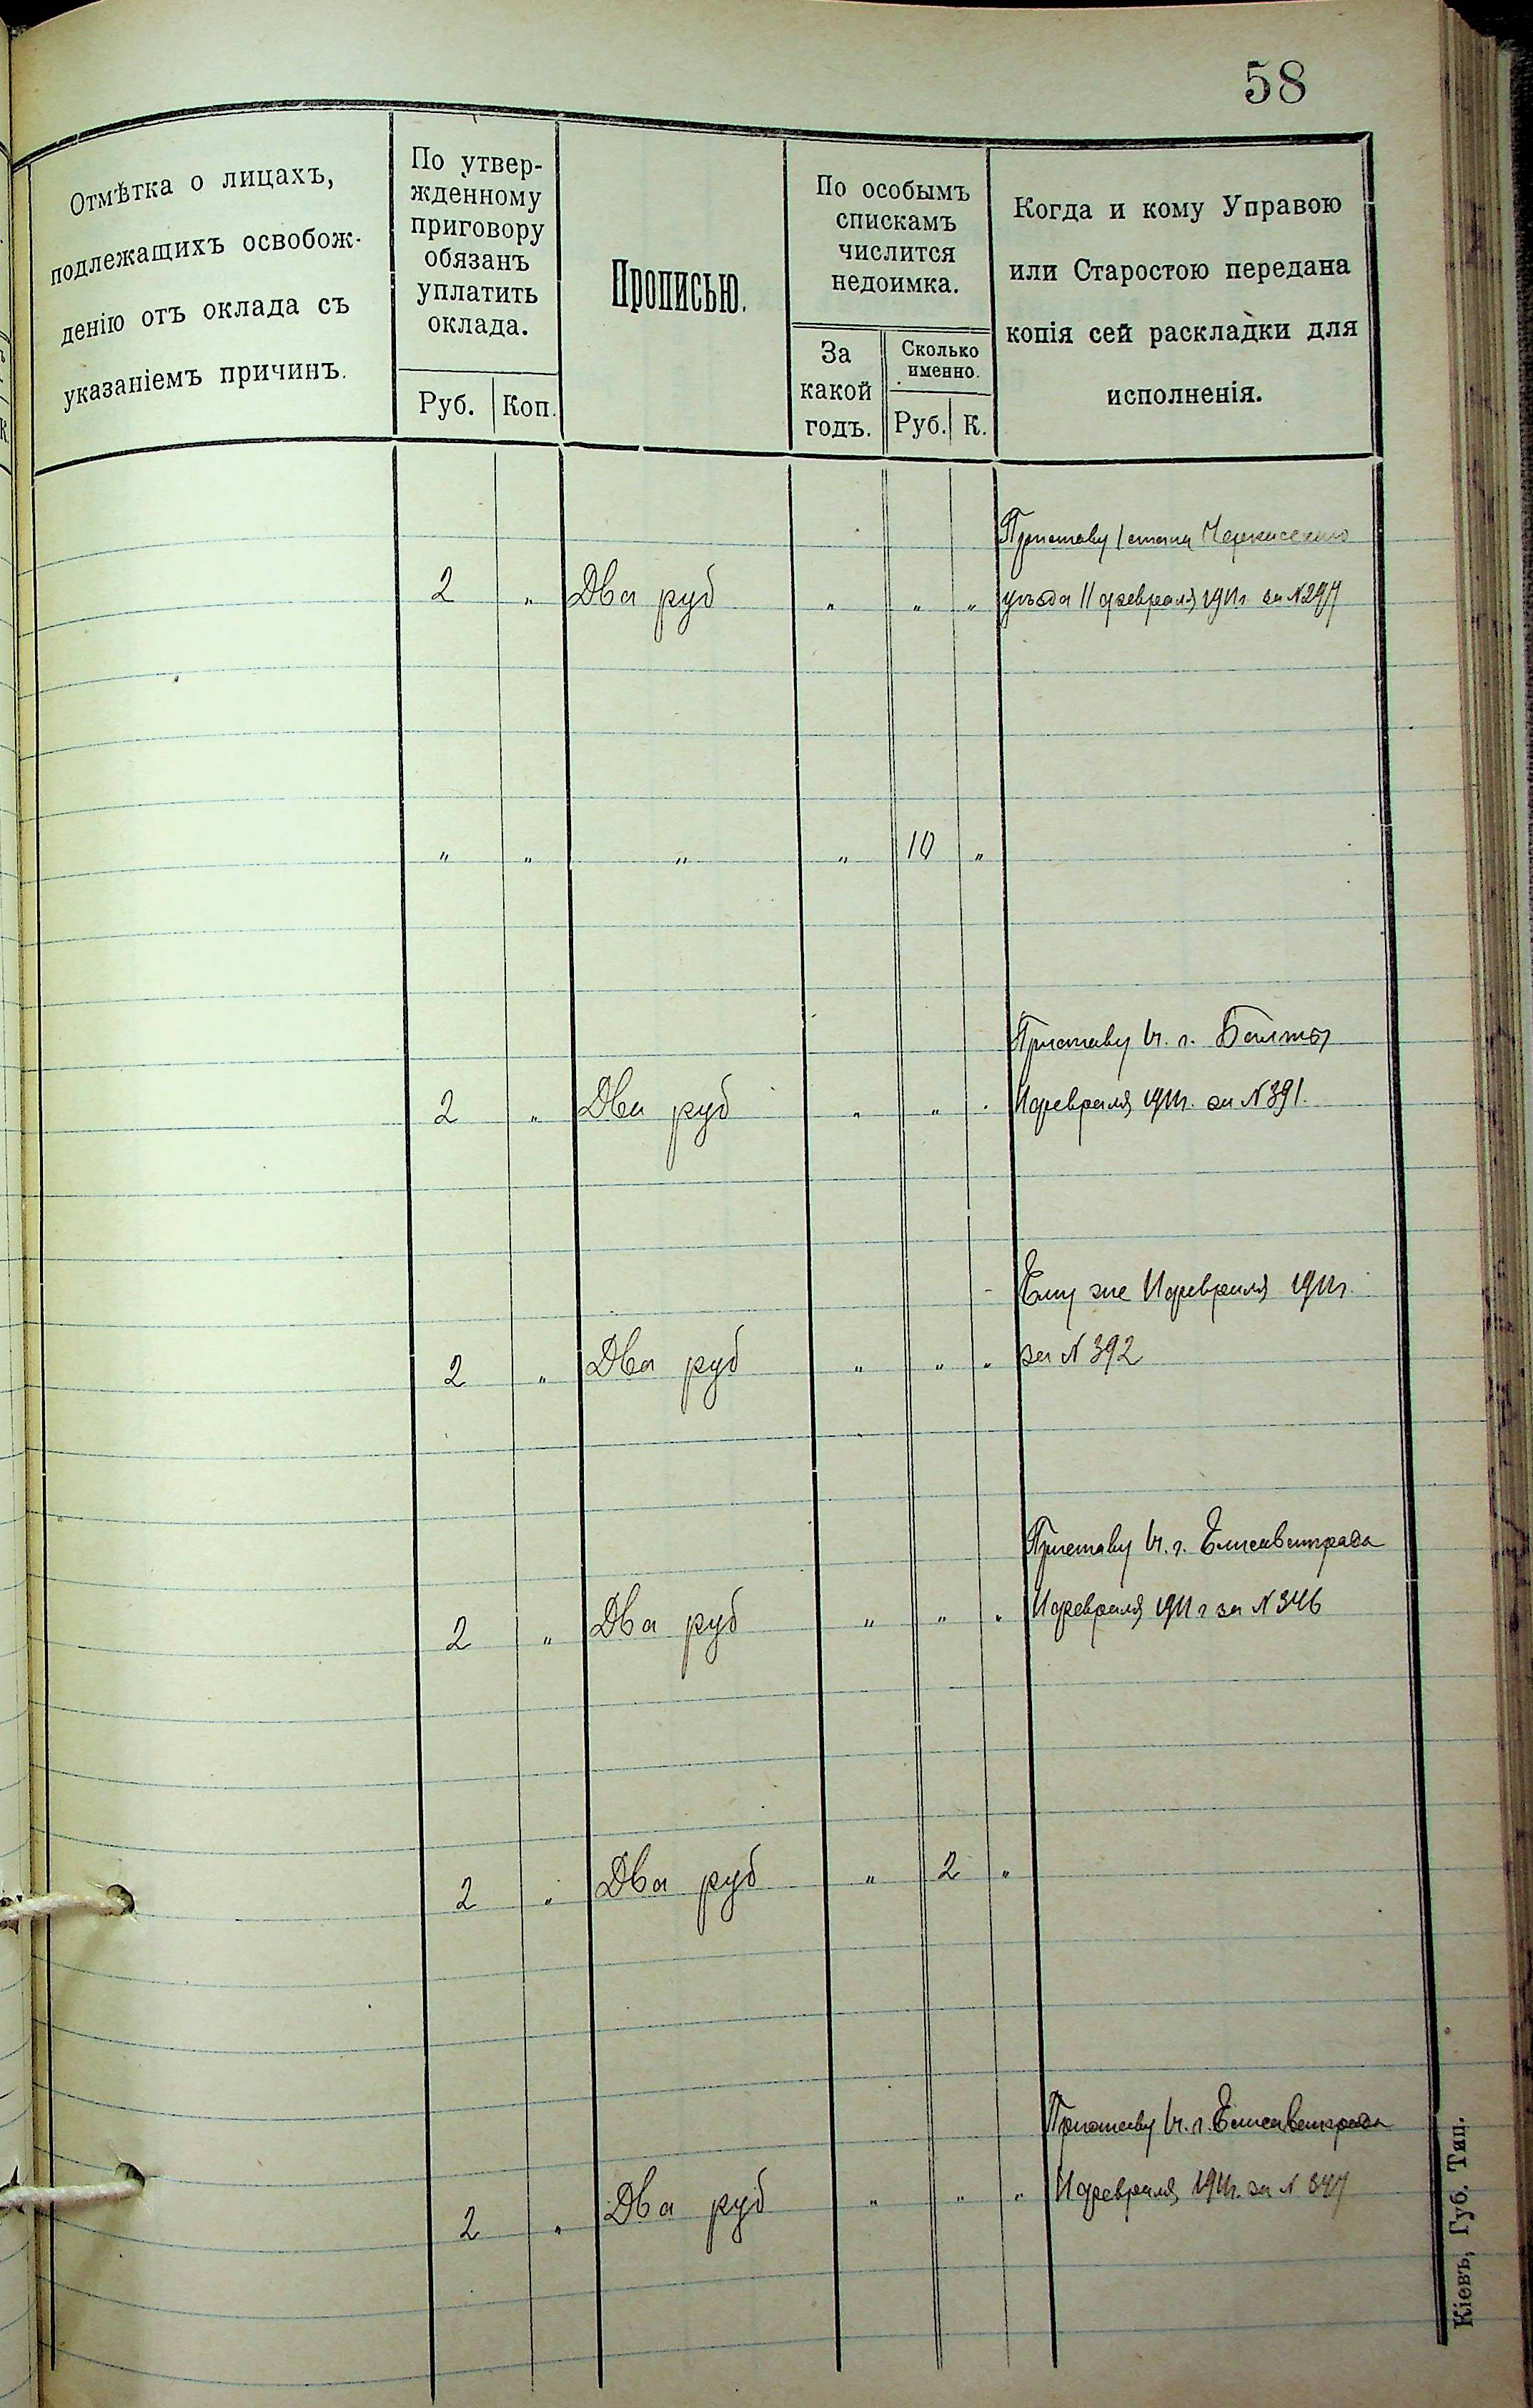 58
Отмѣтка о лицахъ,
подлежащихъ освобож-
денію отъ оклада съ
указаніемъ причинъ.
По утвер-
жденному
приговору
обязанъ
уплатить
оклада.
Руб. Коп.
Прописью.
По особымъ
спискамъ
числится
недоимка.
За
какой
годъ.
Сколько
именно.
Руб. К.
Когда и кому Управою
или Старостою передана
копія сей раскладки для
исполненія.
К.
Приставу 1 стана Черкасскаго
2 " Два руб " " " уѣзда 11 февраля 1911г за №297
" " " " 10 "
Приставу 1ч. г. Балты
2 " Два руб " " " 11 февраля 1911г. за №391.
Ему же 11 февраля 1911г.
2 " Два руб " " " за №392
Приставу 1ч. г. Елисаветграда
2 " Два руб " " " 11 февраля 1911 г за №346
2 " Два руб " 2 "
Приставу 1ч. г. Елисаветграда
2 " Два руб " " " 11 февраля 1911г. за №347
Кіевъ, Губ. Тип.